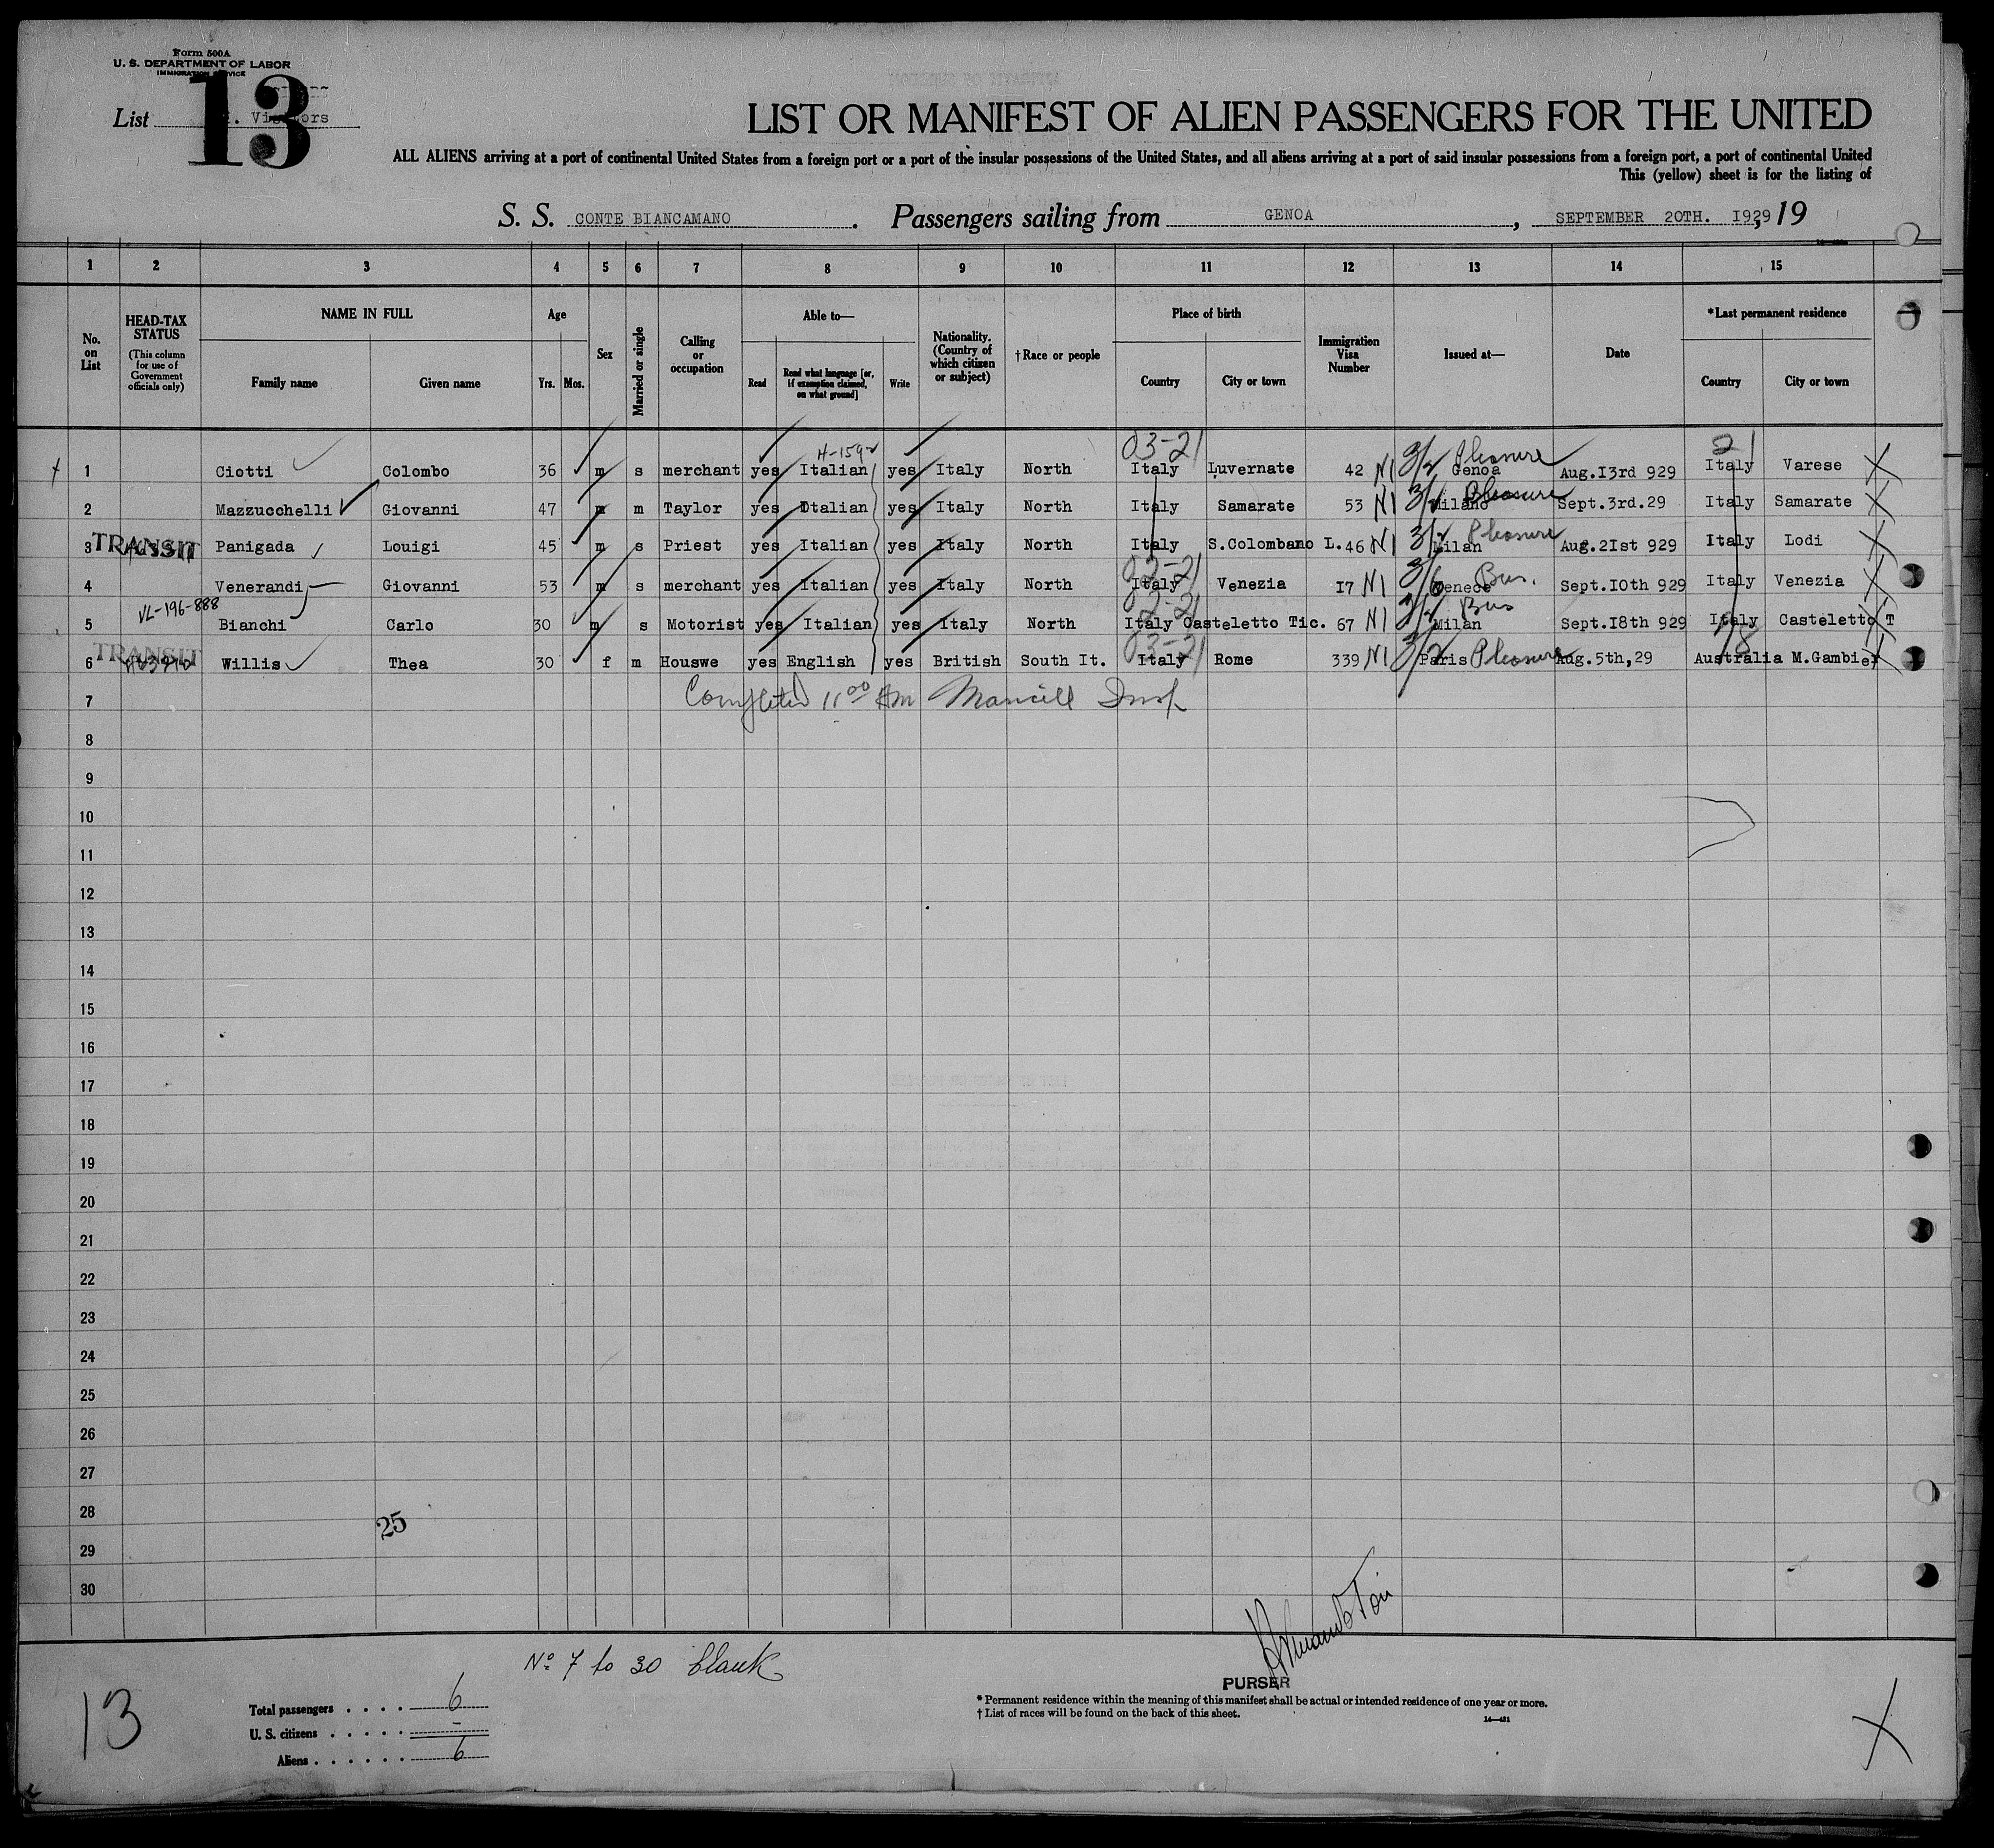 Form 500A
U. S. DEPARTMENT OF LABOR
IMMIGRATION SERVICE
List Visitors
13
LIST OR MANIFEST OF ALIEN PASSENGERS FOR THE UNITED
ALL ALIENS arriving at a port of continental United States from a foreign port or a port of the insular possessions of the United States, and all aliens arriving at a port of said insular possessions from a foreign port, a port of continental United
This (yellow) sheet is for the listing of
S. S. CONTE BIANCAMANO. Passengers sailing from GENOA, SEPTEMBER 20TH. I929, 19
1 2 3 4 5 6 7 8 9 10 11 12 13 14 15
No. on List
HEAD-TAX STATUS
(This column for use of Government officials only)
NAME IN FULL
Family name Given name
Age
Yrs. Mos.
Sex
Married or single
Calling or occupation
Able to—
Read
Read what language [or, if exemption claimed, on what ground]
Write
Nationality. (Country of which citizen or subject)
†Race or people
Place of birth
Country City or town
Immigration Visa Number
Issued at—
Date
*Last permanent residence
Country City or town
03-21 Pleasure 21
1 Ciotti Colombo 36 m s merchant yes Italian yes Italy North Italy Luvernate 42 NI 3/2 Genoa Aug.I3rd 929 Italy Varese X
2 Mazzucchelli Giovanni 47 m m Taylor yes Italian yes Italy North Italy Samarate 53 NI 3/2 Milano Pleasure Sept.3rd.29 Italy Samarate X
3 TRANSIT Panigada Louigi 45 m s Priest yes Italian yes Italy North Italy S.Colombano L. 46 NI 3/2 Milan Pleasure Aug.2Ist 929 Italy Lodi X
02-21
4 Venerandi Giovanni 53 m s merchant yes Italian yes Italy North Italy Venezia I7 NI 3/6 Bus. Sept.I0th 929 Italy Venezia X
VL-196-888 02-21 Bus
5 Bianchi Carlo 30 m s Motorist yes Italian yes Italy North Italy Casteletto Tic. 67 NI Milan Sept.I8th 929 Italy Casteletto T
TRANSIT 03-21 78
6 Willis Thea 30 f m Houswe yes English yes British South It. Italy Rome 339 NI 3/2 Paris Pleasure Aug. 5th,29 Australia M.Gambier X
Completed 11 00 Am Insp
7
8
9
10
11
12
13
14
15
16
17
18
19
20
21
22
23
24
25
26
27
28
25
29
30
No 7 to 30 blank
PURSER
13
Total passengers . . . . 6
U. S. citizens . . . . . -
Aliens . . . . . . 6
* Permanent residence within the meaning of this manifest shall be actual or intended residence of one year or more.
† List of races will be found on the back of this sheet.
X